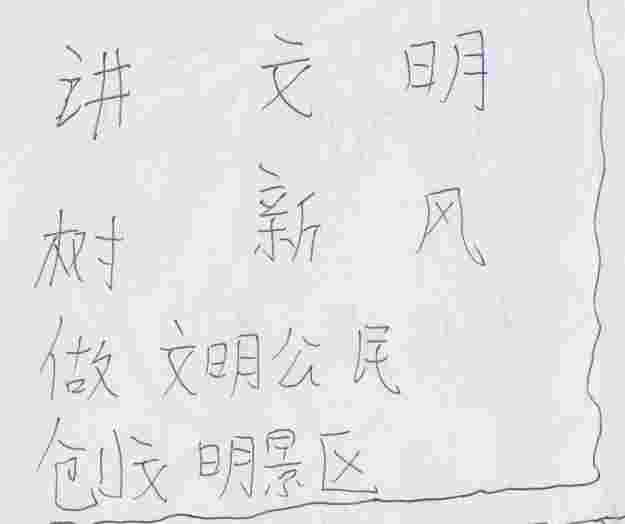 讲文明
树新风
做文明公民
创文明景区